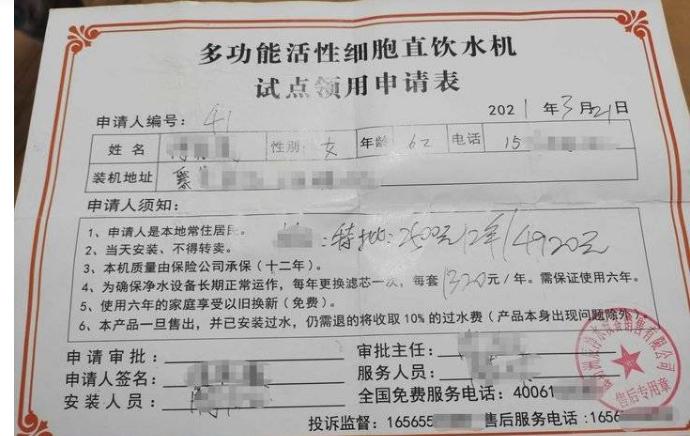 多功能活性细胞直饮水机
试点领用申请表
申请人编号：41 2021年3月21日
姓名 性别：女 年龄 62 电话 15
装机地址
申请人须知：
1、申请人是本地常住居民。
2、当天安装、不得转卖。
：特批：2500元/2年/4920元
3、本机质量由保险公司承保（十二年）。
4、为确保净水设备长期正常运作，每年更换滤芯一次，每套1320元/年。需保证使用六年。
5、使用六年的家庭享受以旧换新（免费）。
6、本产品一旦售出，并已安装过水，仍需退的将收取10%的过水费（产品本身出现问题除外）
申请审批： 审批主任：
申请人签名： 服务人员：
安装人员： 全国免费服务电话：40061
投诉监督：16565 售后服务电话：1656
有限公司
售后专用章